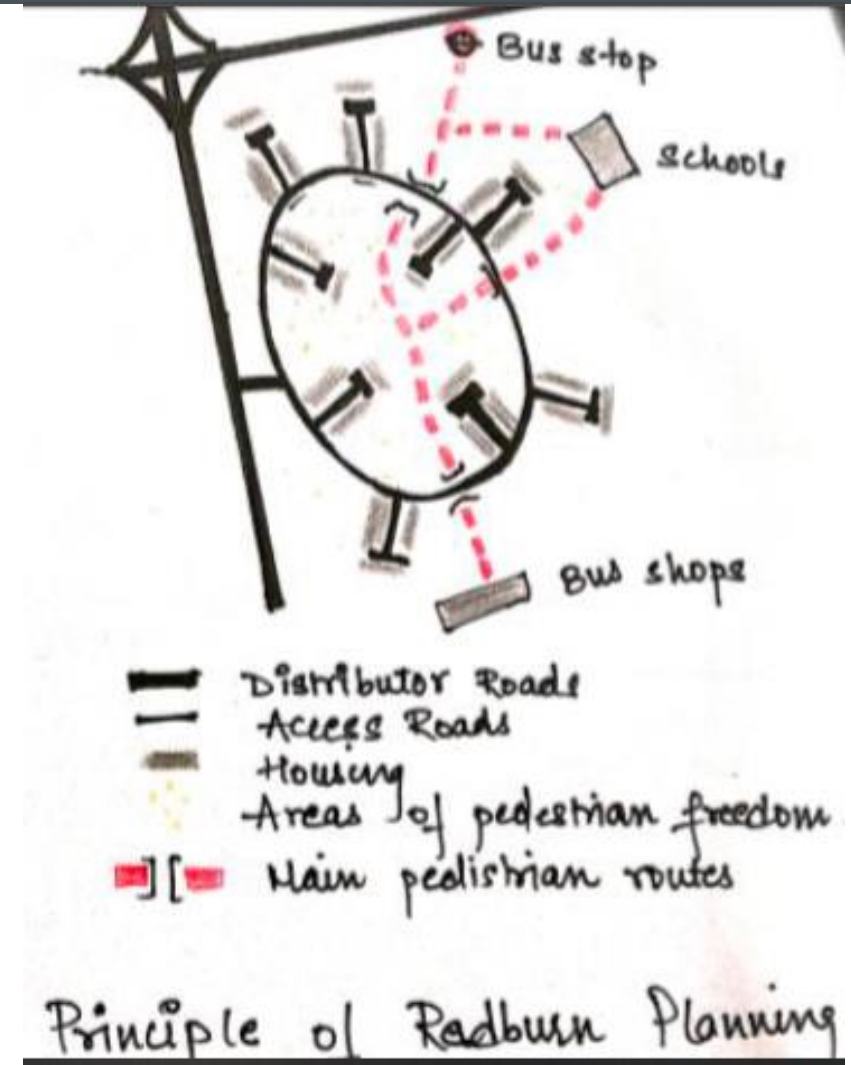 Bus stop
Schools
Bus shops
Distributor Roads
Access Roads
Housing
Areas of pedestrian freedom
Main pedistrian routes
Principle of Radburn Planning